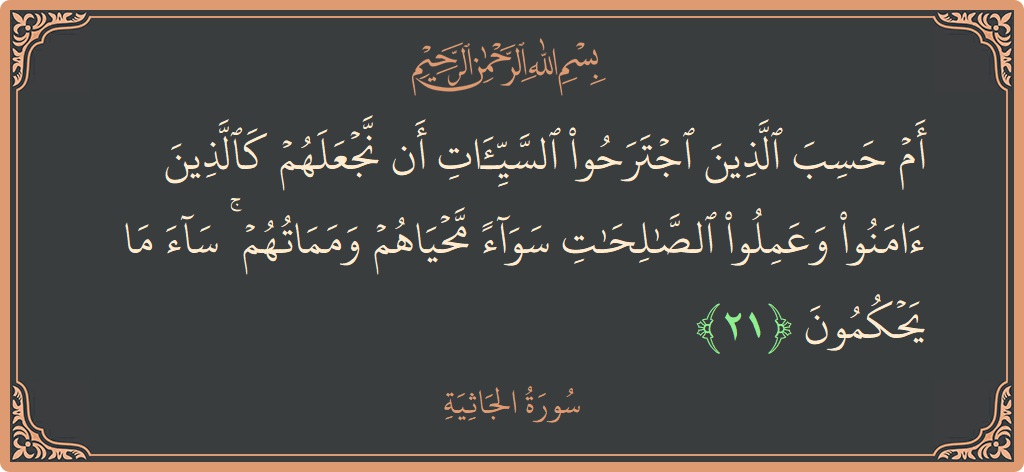 بِسْمِ اللَّهِ الرَّحْمَٰنِ الرَّحِيمِ
أَمْ حَسِبَ ٱلَّذِينَ ٱجْتَرَحُوا۟ ٱلسَّيِّـَٔاتِ أَن نَّجْعَلَهُمْ كَٱلَّذِينَ
ءَامَنُوا۟ وَعَمِلُوا۟ ٱلصَّـٰلِحَـٰتِ سَوَآءً مَّحْيَاهُمْ وَمَمَاتُهُمْ ۚ سَآءَ مَا
يَحْكُمُونَ ﴿٢١﴾
سُورَةُ الجَاثِيَةِ